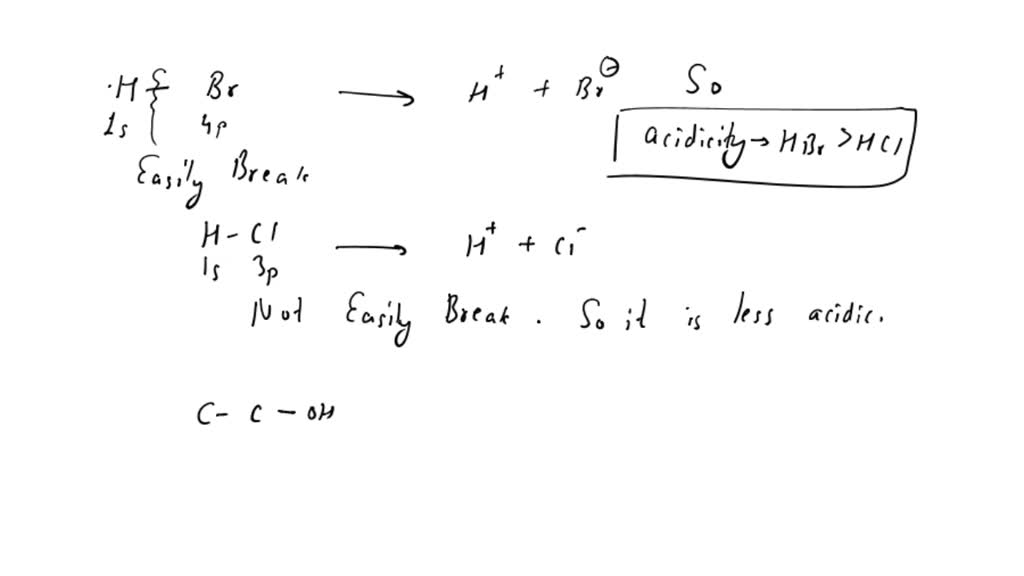 ·H Br → H⁺ + Br⊖ So
1s 4p
acidicity → HBr > HCl
Easily Break
H - Cl → H⁺ + Cl⁻
1s 3p
Not Easily Break . So it is less acidic.
C - C - OH